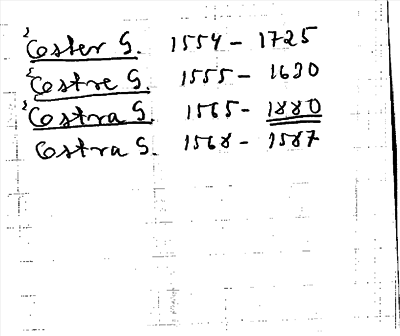 Coster G. 1554 - 1725
Costre G 1555 - 1630
Costra G. 1565 - 1880
Costra G. 1568 - 1587